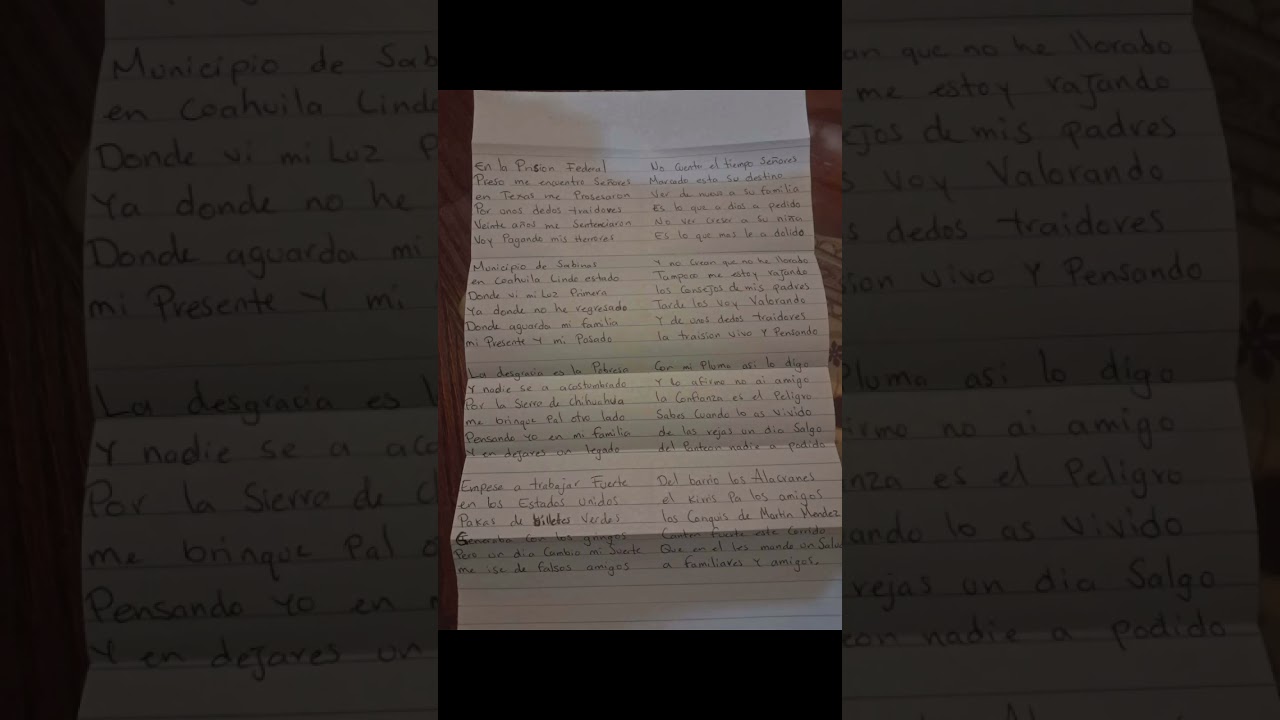 En la Prision Federal
Preso me encuentro Señores
en Texas me Prosesaron
Por unos dedos traidores
Veinte años me Sentenciaron
Voy Pagando mis Herrores
Municipio de Sabinas
en Coahuila Linde estado
Donde vi mi Luz Primera
Ya donde no he regresado
Donde aguarda mi familia
mi Presente Y mi Pasado
La desgracia es la Pobresa
Y nadie se a acostumbrado
Por la Sierra de Chihuahua
me brinque Pal otro lado
Pensando Yo en mi familia
Y en dejares un legado
Empese a trabajar Fuerte
en los Estados Unidos
Pakas de billetes Verdes
Generaba con los gringos
Pero un dia Cambio mi Suerte
me ise de falsos amigos
No Cuento el tiempo Señores
Marcado esta Su destino
Ver de nuevo a su familia
Es lo que a dios a pedido
No ver Creser a Su niña
Es lo que mas le a dolido
Y no Crean que no he llorado
Tampoco me estoy rajando
los Consejos de mis padres
Tarde los Voy Valorando
Y de unos dedos traidores
la traision vivo Y Pensando
Con mi Pluma asi lo digo
Y lo afirmo no ai amigo
la Confianza es el Peligro
Sabes Cuando lo as Vivido
de las rejas un dia Salgo
del Panteon nadie a podido
Del barrio los Alacranes
el Kirris Pa los amigos
los Canquis de Martin Mendez
Cantan Fuerte este Corrido
Que en el les mando un Salu
a familiares Y amigos.
Municipio de Sab
en Coahuila Linde
Donde vi mi Luz P
Ya donde no he
Donde aguarda mi
mi Presente Y mi
La desgracia es l
Y nadie se a aco
Por la Sierra de C
me brinque Pal o
Pensando Yo en m
Y en dejares un
an que no he llorado
me estoy rajando
ejos de mis padres
s Voy Valorando
s dedos traidores
sion vivo Y Pensando
Pluma asi lo digo
irmo no ai amigo
nza es el Peligro
ando lo as Vivido
rejas un dia Salgo
eon nadie a podido